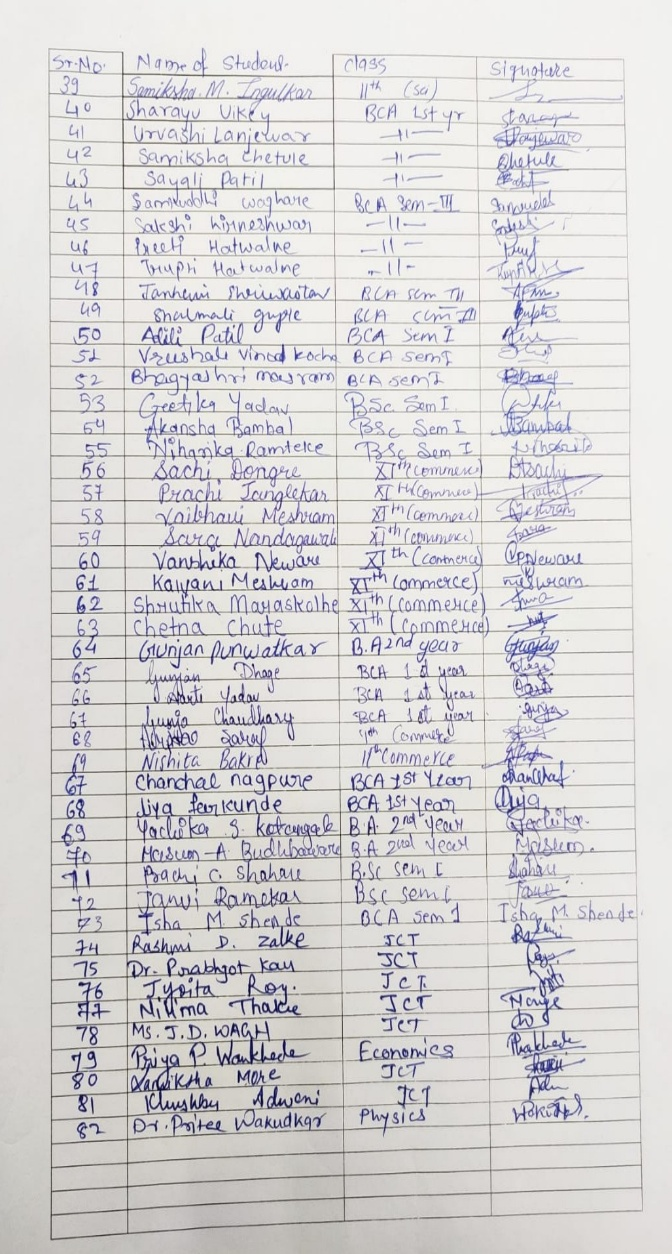 Sr.No. Name of Student. Class Signature
39 Samiksha. M. Ingulkar 11th (sci)
40 Sharayu Vikey BCA 1st yr
41 Urvashi Lanjewar -11- Lanjewar
42 Samiksha Chetule -11- Chetule
43 Sayali Patil -11-
44 Samruddhi waghare BCA Sem-III
45 Sakshi -11-
46 Preeti Hatwalne -11-
47 Trupti Hatwalne -11-
48 Shriwastav BCA sem III
49 Shalmali gupte BCA sem III Gupte
50 Aditi Patil BCA Sem I
51 Vrushali Vinod kocha BCA semI
52 Bhagyashri masram BCA semI
53 Geetika Yadav BSc. Sem I.
54 Akansha Bambal BSc Sem I Bambal
55 Niharika Ramteke BSc Sem I Niharika
56 Sachi Dongre XIth (commerce) Sachi
57 Prachi Janglekar XIth (commerce) Prachi
58 Vaibhavi Meshram XIth (commerce) Meshram
59 Sara Nandagawali XIth (commerce) Sara
60 Vanshika Neware XIth (commerce) Neware
61 Kalyani Meshram XIth (commerce) meshram
62 Shrutika Mayaskolhe XIth (commerce)
63 Chetna Chute XIth (commerce)
64 Gunjan punwatkar B.A 2nd year Gunjan
65 Gunjan Dhage BCA 1st year Dhage
66 Aarti Yadav BCA 1st year Aarti
67 Gunja Chaudhary BCA 1st year Gunja
68 Saraf 11th Commerce Saraf
69 Nishita Bakre 11th Commerce
67 Chanchal nagpure BCA 1st Year Chanchal
68 Jiya farkunde BCA 1st year Jiya
69 Yachika S. B.A. 2nd year Yachika.
70 Masum-A Budhbaware B.A 2nd Year Masum.
71 Prachi C. Shahare B.Sc sem I Shahare
72 Janvi Ramekar BSc sem I Janvi
73 Isha M. Shende BCA Sem I Isha. M. Shende.
74 Rashmi D. Zalke JCT Rashmi
75 Dr. Prabhgot Kau JCT
76 Jyoita Roy. JCT
77 Nilima Thakre JCT
78 MS. J.D. WAGH JCT
79 Priya P Wankhede Economics
80 More JCT
81 Khushbu Adwani JCT
82 Dr. Pritee Wakudkar Physics